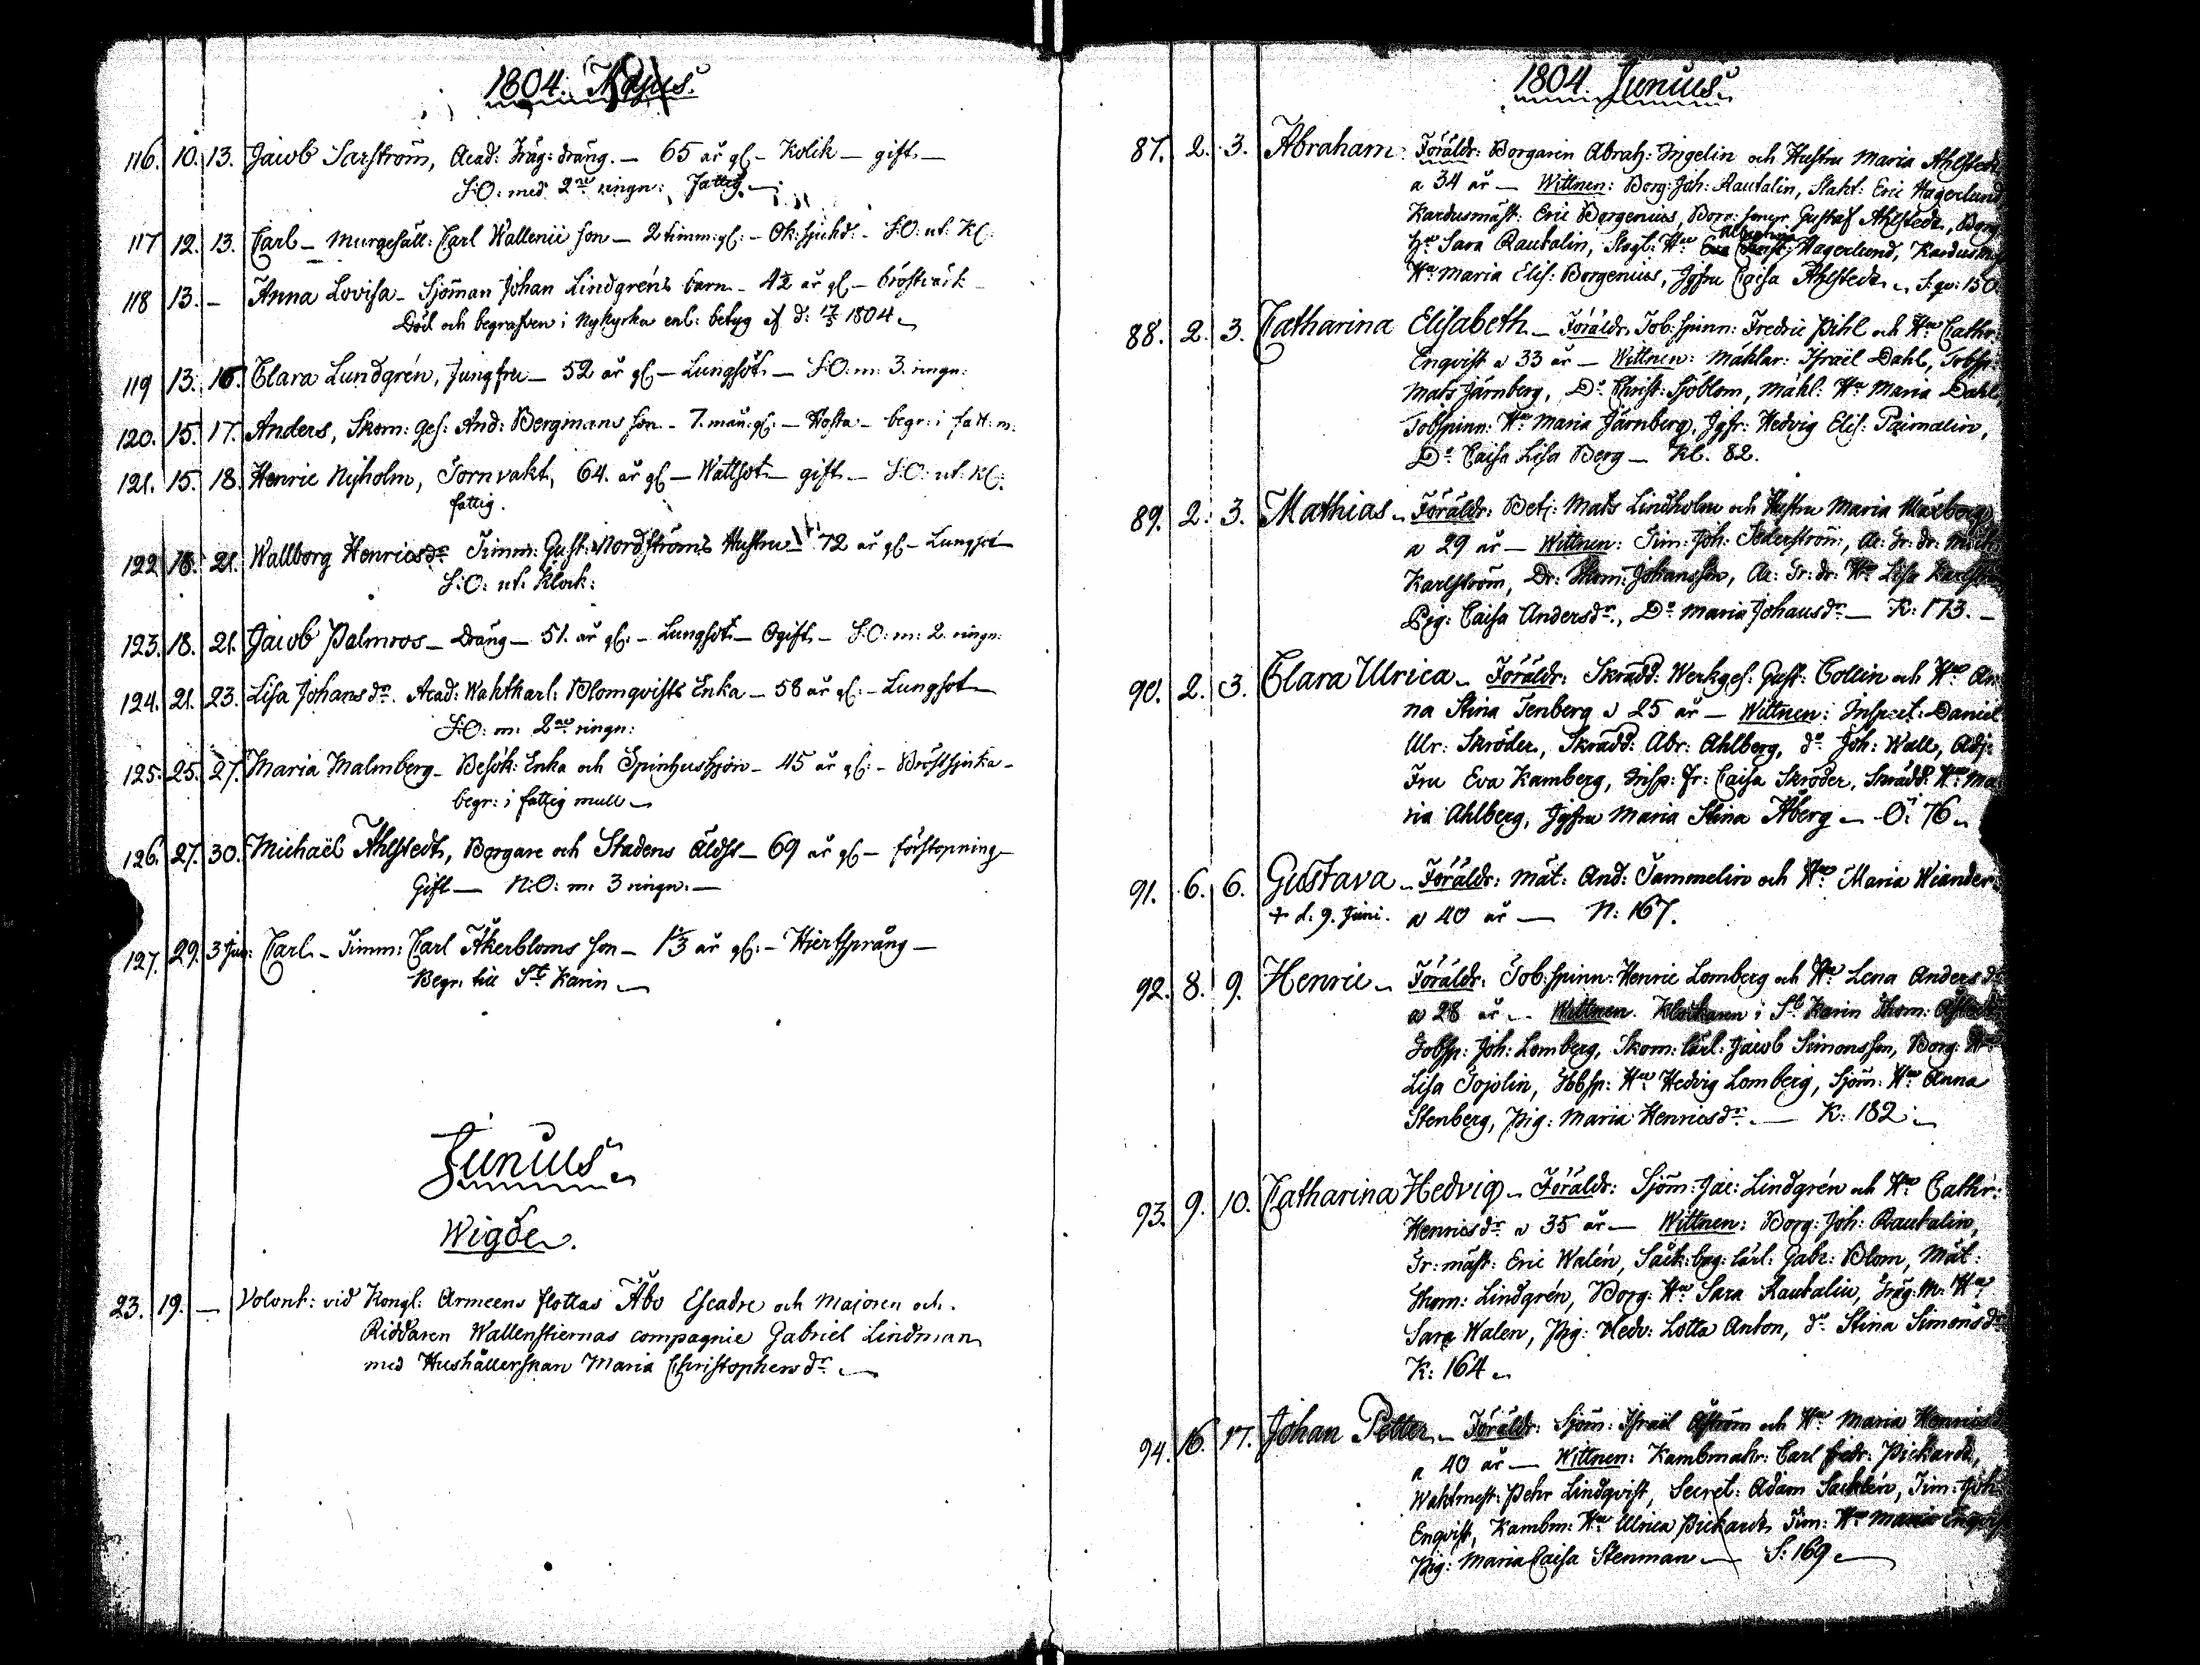 1804. Majus.
116. 10. 13. Jacob Sarström, Acad: Träg: dräng. — 65 år gl. — Kolik — gift. —
S:O: med 2ne ringn: fattig. —
117 12. 13. Carl — Murgesäll: Carl Wallenii son — 2 timm: gl: — Ok: sjukd. — S:O: ut. Kl:
118 13. — Anna Lovisa — Sjöman Johan Lindgréns barn — 4½ år gl. — bröstvärk —
Död och begrafven i Nykyrka enl: betyg af d: 17/5 1804.
119 13. 16. Clara Lundgrén, Jungfru — 52 år gl. — Lungsot. — S:O: m: 3. ringn:
120. 15. 17. Anders, Skom: Ges: And: Bergmans son — 7. mån: gl: — Hosta — begr: i fatt: m:
121. 15. 18. Henric Nyholm, Tornvakt, 64. år gl. — Wattsot — gift. — S:O: ut: Kl:
fattig.
122 18. 21. Wallborg Henricsdr Timm: Gust: Nordströms Hustru — 72 år gl. — Lungsot —
S:O: ut. Klock:
123. 18. 21. Jacob Palmroos — Dräng — 51. år gl: — Lungsot — Ogift. — S:O: m: 2. ringn:
124. 21. 23. Lisa Johansdr. Acad: Wahtkarl: Blomqvists Enka — 58 år gl: — Lungsot —
S:O: m: 2ne ringn:
125. 25. 27. Maria Malmberg — Besök: Enka och Spinhushjon — 45 år gl: — Bröstsjuka —
begr: i fattig mull —
126. 27. 30. Michaël Ahlstedt, Borgare och Stadens Äldst — 69 år gl — förstopning —
Gift — N:O: m: 3 ringn. —
127. 29. 3 Jun: Carl — Timm: Carl Åkerbloms son — 1⅓ år gl: — Hiertsprång —
Begr: till St Karin —
Junius.
Wigde.
23. 19. — Volont: vid Kongl: Armeens flottas Åbo Escadre och Majoren och
Riddaren Wallenstiernas compagnie Gabriel Lindman
med Hushållerskan Maria Christophersdr. —
1804. Junius.
87. 2. 3. Abraham. Föräldr: Borgaren Abrah: Ingelin och Hustru Maria Ahlstedt
a 34 år — Wittnen: Borg: Joh: Rautalin, Slakt: Eric Hagerlund
Kardusmäst: Eric Borgenius, Gustaf Ahlstedt, Borg:
Hu Sara Rautalin, Hu Hagerlund, Kardusm:
Hu Maria Elis: Borgenius, Jgfru Caisa Ahlstedt. S: qv: 150
88. 2. 3. Catharina Elisabeth — Föräldr. Tob: spinn: Fredric Pihl och Hu Cathr:
Enqvist a 33 år — Wittnen: Mäklar: Israel Dahl, Tobsp:
Mats Järnberg, Do Christ: Sjöblom, Mäkl: Hu Maria Dahl,
Tobspinn: Hu Maria Järnberg, Jgfr: Hedvig Elis: Paimalin,
Do Caisa Lisa Berg — Kl. 82.
89. 2. 3. Mathias — Föräldr: Betj: Mats Lindholm och Hustru Maria
a 29 år — Wittnen: Tim: Joh: Cederström, Ac: Tr: dr:
Karlström, Dr: Thom: Johansson, Ac: Tr: dr: Hu Lisa
Pig: Caisa Andersdr., Do Maria Johansdr — K: 173. —
90. 2. 3. Clara Ulrica — Föräldr: Skrädd: Werkges: Gust: Collin och Hu An
na Stina Tenberg a 25 år — Wittnen: Inspect: Daniel
Ulr: Skröder, Skrädd: Abr: Ahlberg, do Joh: Wall, Adj:
Fru Eva Kamberg, Insp: Fr: Caisa Skröder, Skrädd: Hu Ma
ria Ahlberg, Jgfru Maria Stina Åberg — O: 76
91. 6. 6. Gustava — Föräldr: Mät: And: Tammelin och Hu Maria Wiander
+ d. 9. Juni. a 40 år — N: 167.
92. 8. 9. Henric — Föräldr: Tob: spinn: Henric Lomberg och Hu Lena Andersdr
a 28 år — Wittnen. Klockaren i St Karin Thom:
Tobsp: Joh: Lomberg, Skom: lärl: Jacob Simonsson, Borg: Hu
Lisa Tojolin, Tobsp: Hu Hedvig Lomberg, Sjöm: Hu Anna
Stenberg, Pig: Maria Henricsdr. — K: 182
93. 9. 10. Catharina Hedvig — Föräldr: Sjöm: Jac: Lindgrén och Hu Cathr:
Henricsdr a 35 år — Wittnen: Borg: Joh: Rautalin,
Tr: mäst: Eric Walén, lärl: Gabr: Blom, Mät:
Thom: Lindgrén, Borg: Hu Sara Rautalin, Träg: M: Hu
Sara Walen, Pig: Hedv: Lotta Anton, do Stina Simonsdr
K: 164
94. 16. 17. Johan Petter — Föräldr: Sjöm: Israël Åström och Hu Maria Henricsdr
a 40 år — Wittnen: Kambmakr: Carl Fredr: Pickardt,
Wahtmest: Pehr Lindqvist, Secret: Adam Sacklén, Tim: Joh:
Enqvist, Kambm: Hu Ulrica Pickardt, Tim: Hu Maria Enqvist
Pig: Maria Caisa Stenman — S: 169